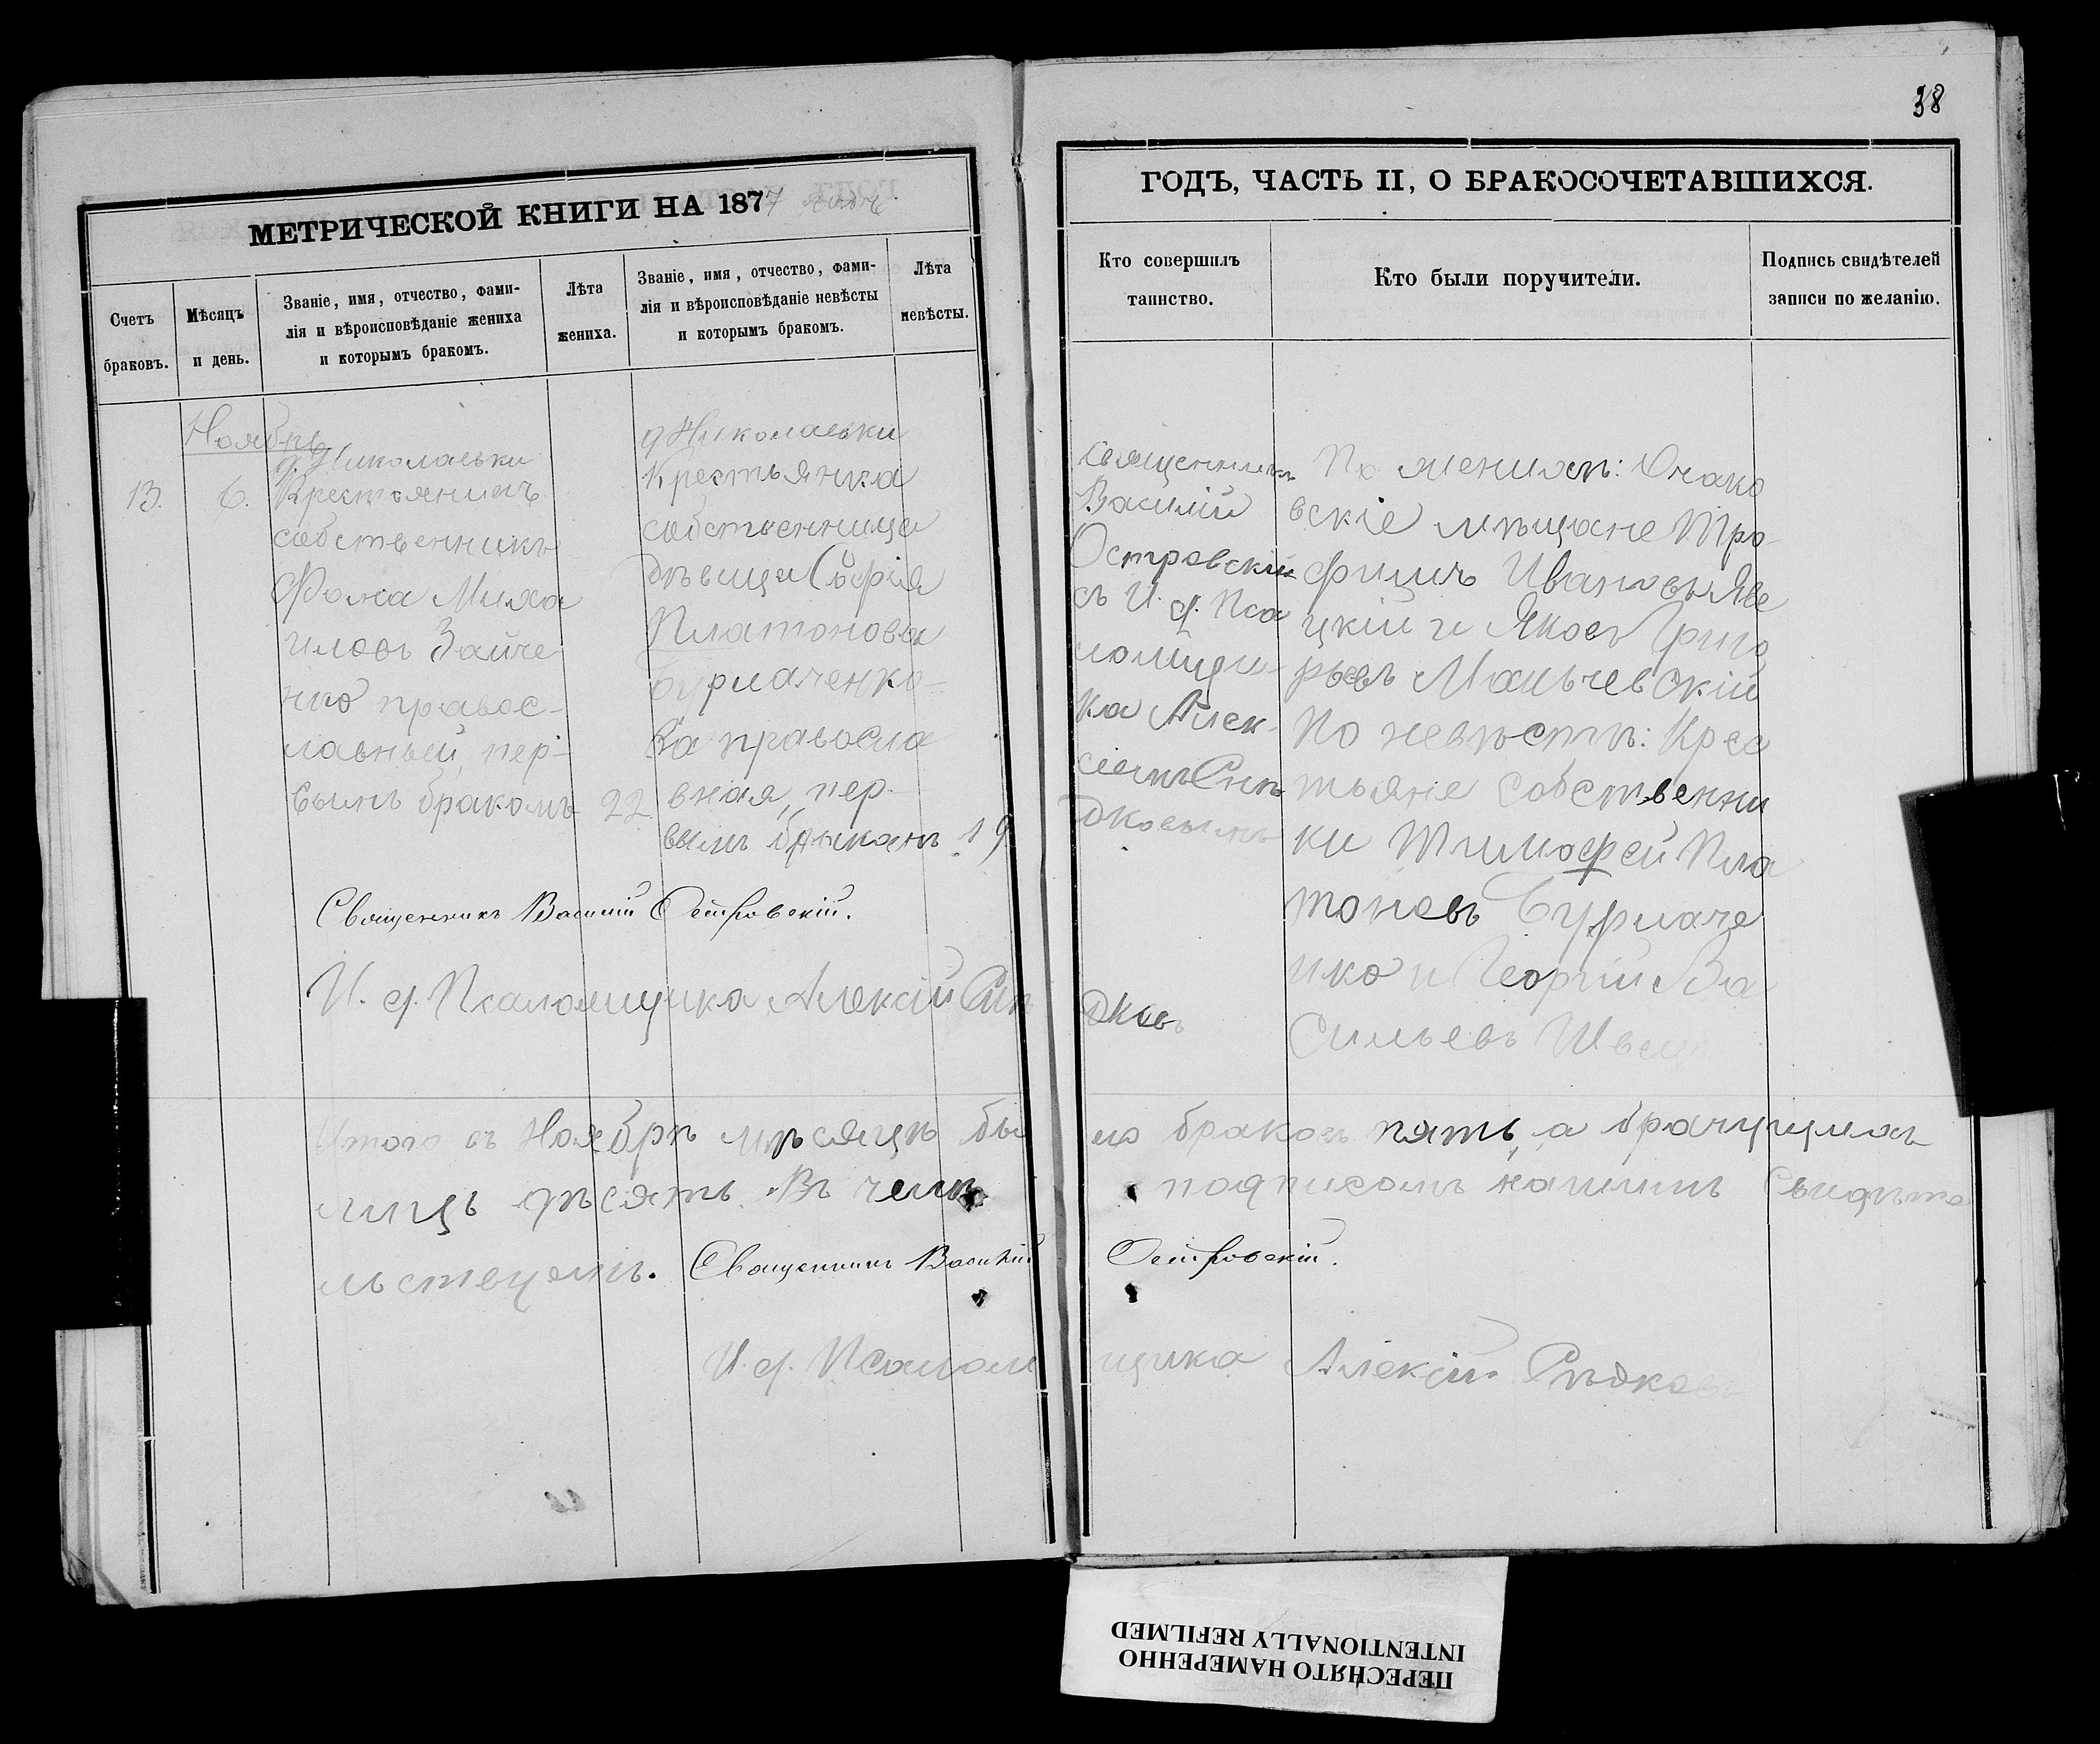 38
МЕТРИЧЕСКОЙ КНИГИ НА 1877
ГОДЪ, ЧАСТЬ II, О БРАКОСОЧЕТАВШИХСЯ.
Счетъ
браковъ.
Мѣсяцъ
и день.
Званіе, имя, отчество, фами-
лія и вѣроисповѣданіе жениха
и которымъ бракомъ.
Лѣта
жениха.
Званіе, имя, отчество, фами-
лія и вѣроисповѣданіе невѣсты
и которымъ бракомъ.
Лѣта
невѣсты.
Кто совершилъ
таинство.
Кто были поручители.
Подпись свидѣтелей
записи по желанію.
Ноябрь
13.
6.
д. Николаевки
Крестьянинъ
собственникъ
Фома Миха
иловъ Зайче
нко правос-
лавный, пер-
вымъ бракомъ
22
д Николаевки
Крестьянка
собственница
дѣвица Софія
Платонова
Бурлаченко-
ва правосла
вная, пер-
вымъ бракомъ
19
Священникъ
Василій
Островскій
съ И. д. Пса
ломщи-
ка Алек-
сіемъ
дковымъ
По женихѣ: Очако
вскіе мѣщане Тро
фимъ Ивановъ Яве
цкій и Яковъ Григо
рьевъ Маньчевскій
По невѣстѣ: Крес
тьяне собственни
ки Тимофей Пла
тоновъ Бурлаче
нко и Георгій Ва
сильевъ Швец
Священникъ Василій Островскій.
И. д. Псаломщика Алексій Рѣ
дковъ
Итого въ Ноябрѣ мѣсяцѣ бы
ло браковъ пять, а брачущихъ
лицъ дѣсять. Въ чемъ
подписомъ нашимъ свидѣте
льствуемъ. Священникъ Василій
Островскій.
И. д. Псалом
щика Алексій Рѣдковъ
ПЕРЕСНЯТО НАМЕРЕННО
INTENTIONALLY REFILMED